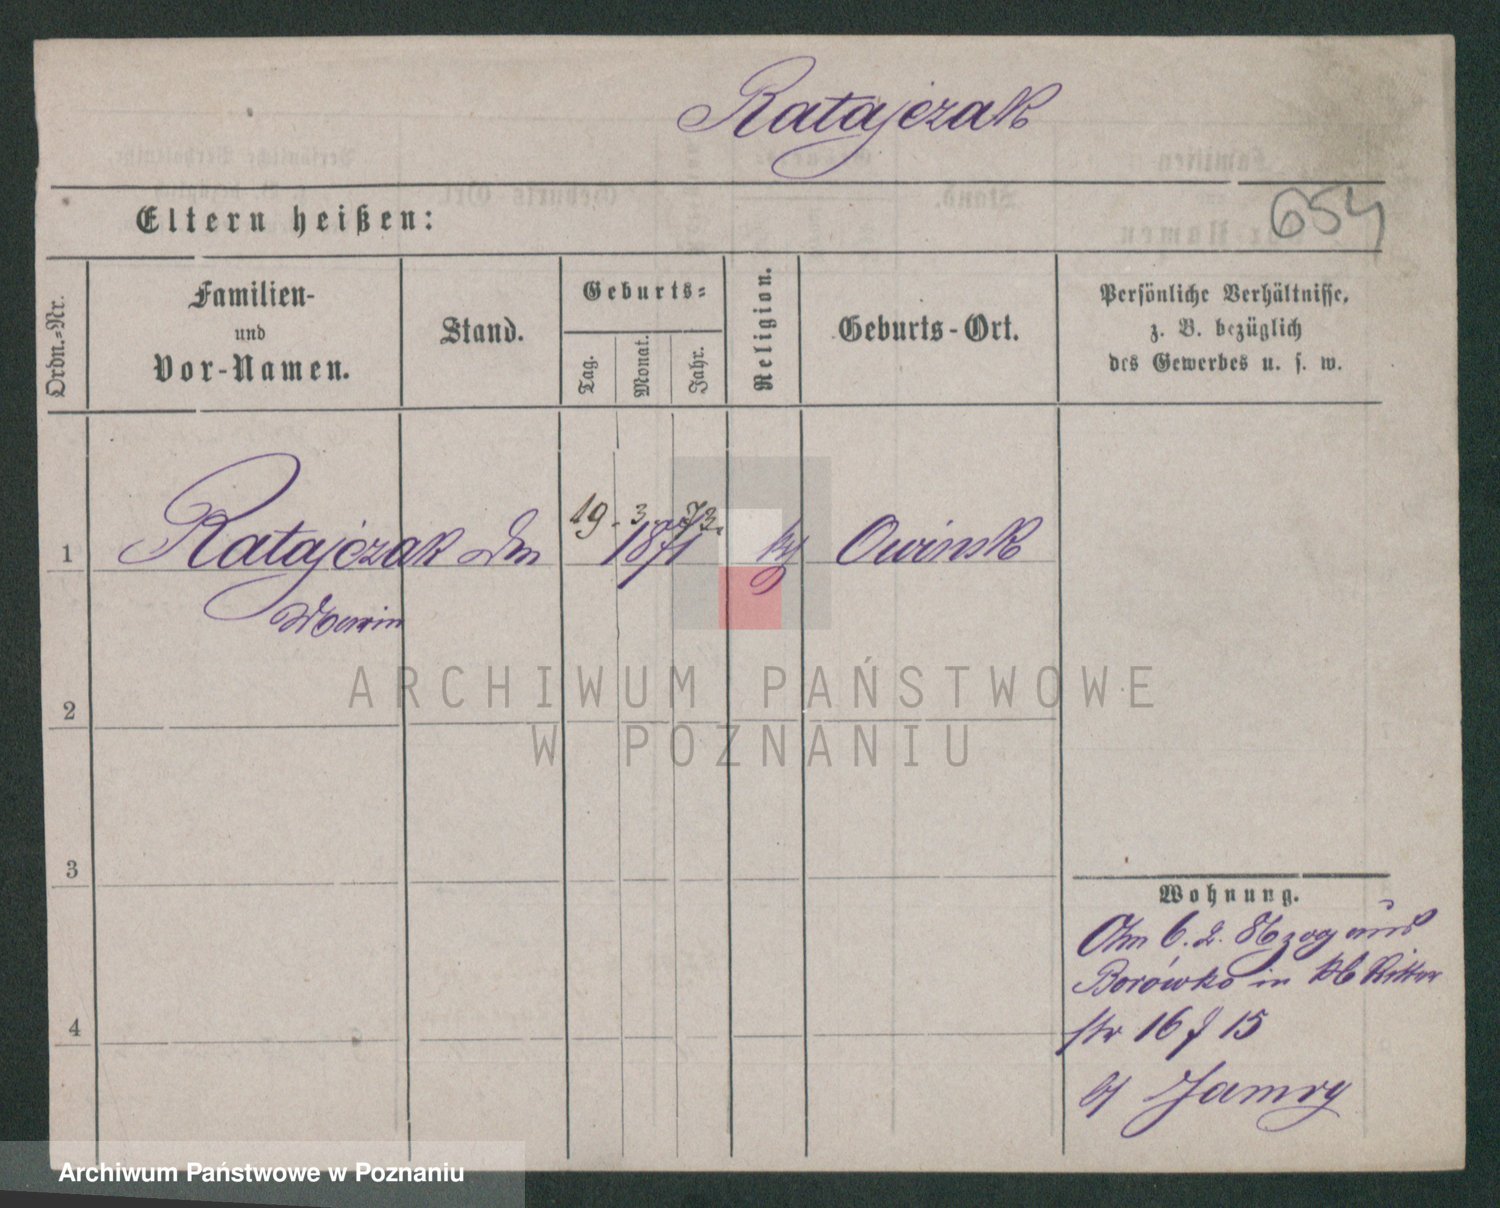 Ratajczak
654
Eltern heißen:
Ordn.-Nr.
Familien-
und
Vor-Namen.
Stand.
Geburts-
Tag.
Monat.
Jahr.
Religion.
Geburts-Ort.
Persönliche Verhältnisse,
z. B. bezüglich
des Gewerbes u. s. w.
19. 3. 73.
1 Ratajczak 1871 Owinsk
2
3
4
Wohnung.
6. 2. 86 zog aus
Borówko in Ritter
str 16 15
ARCHIWUM PAŃSTWOWE
W POZNANIU
Archiwum Państwowe w Poznaniu